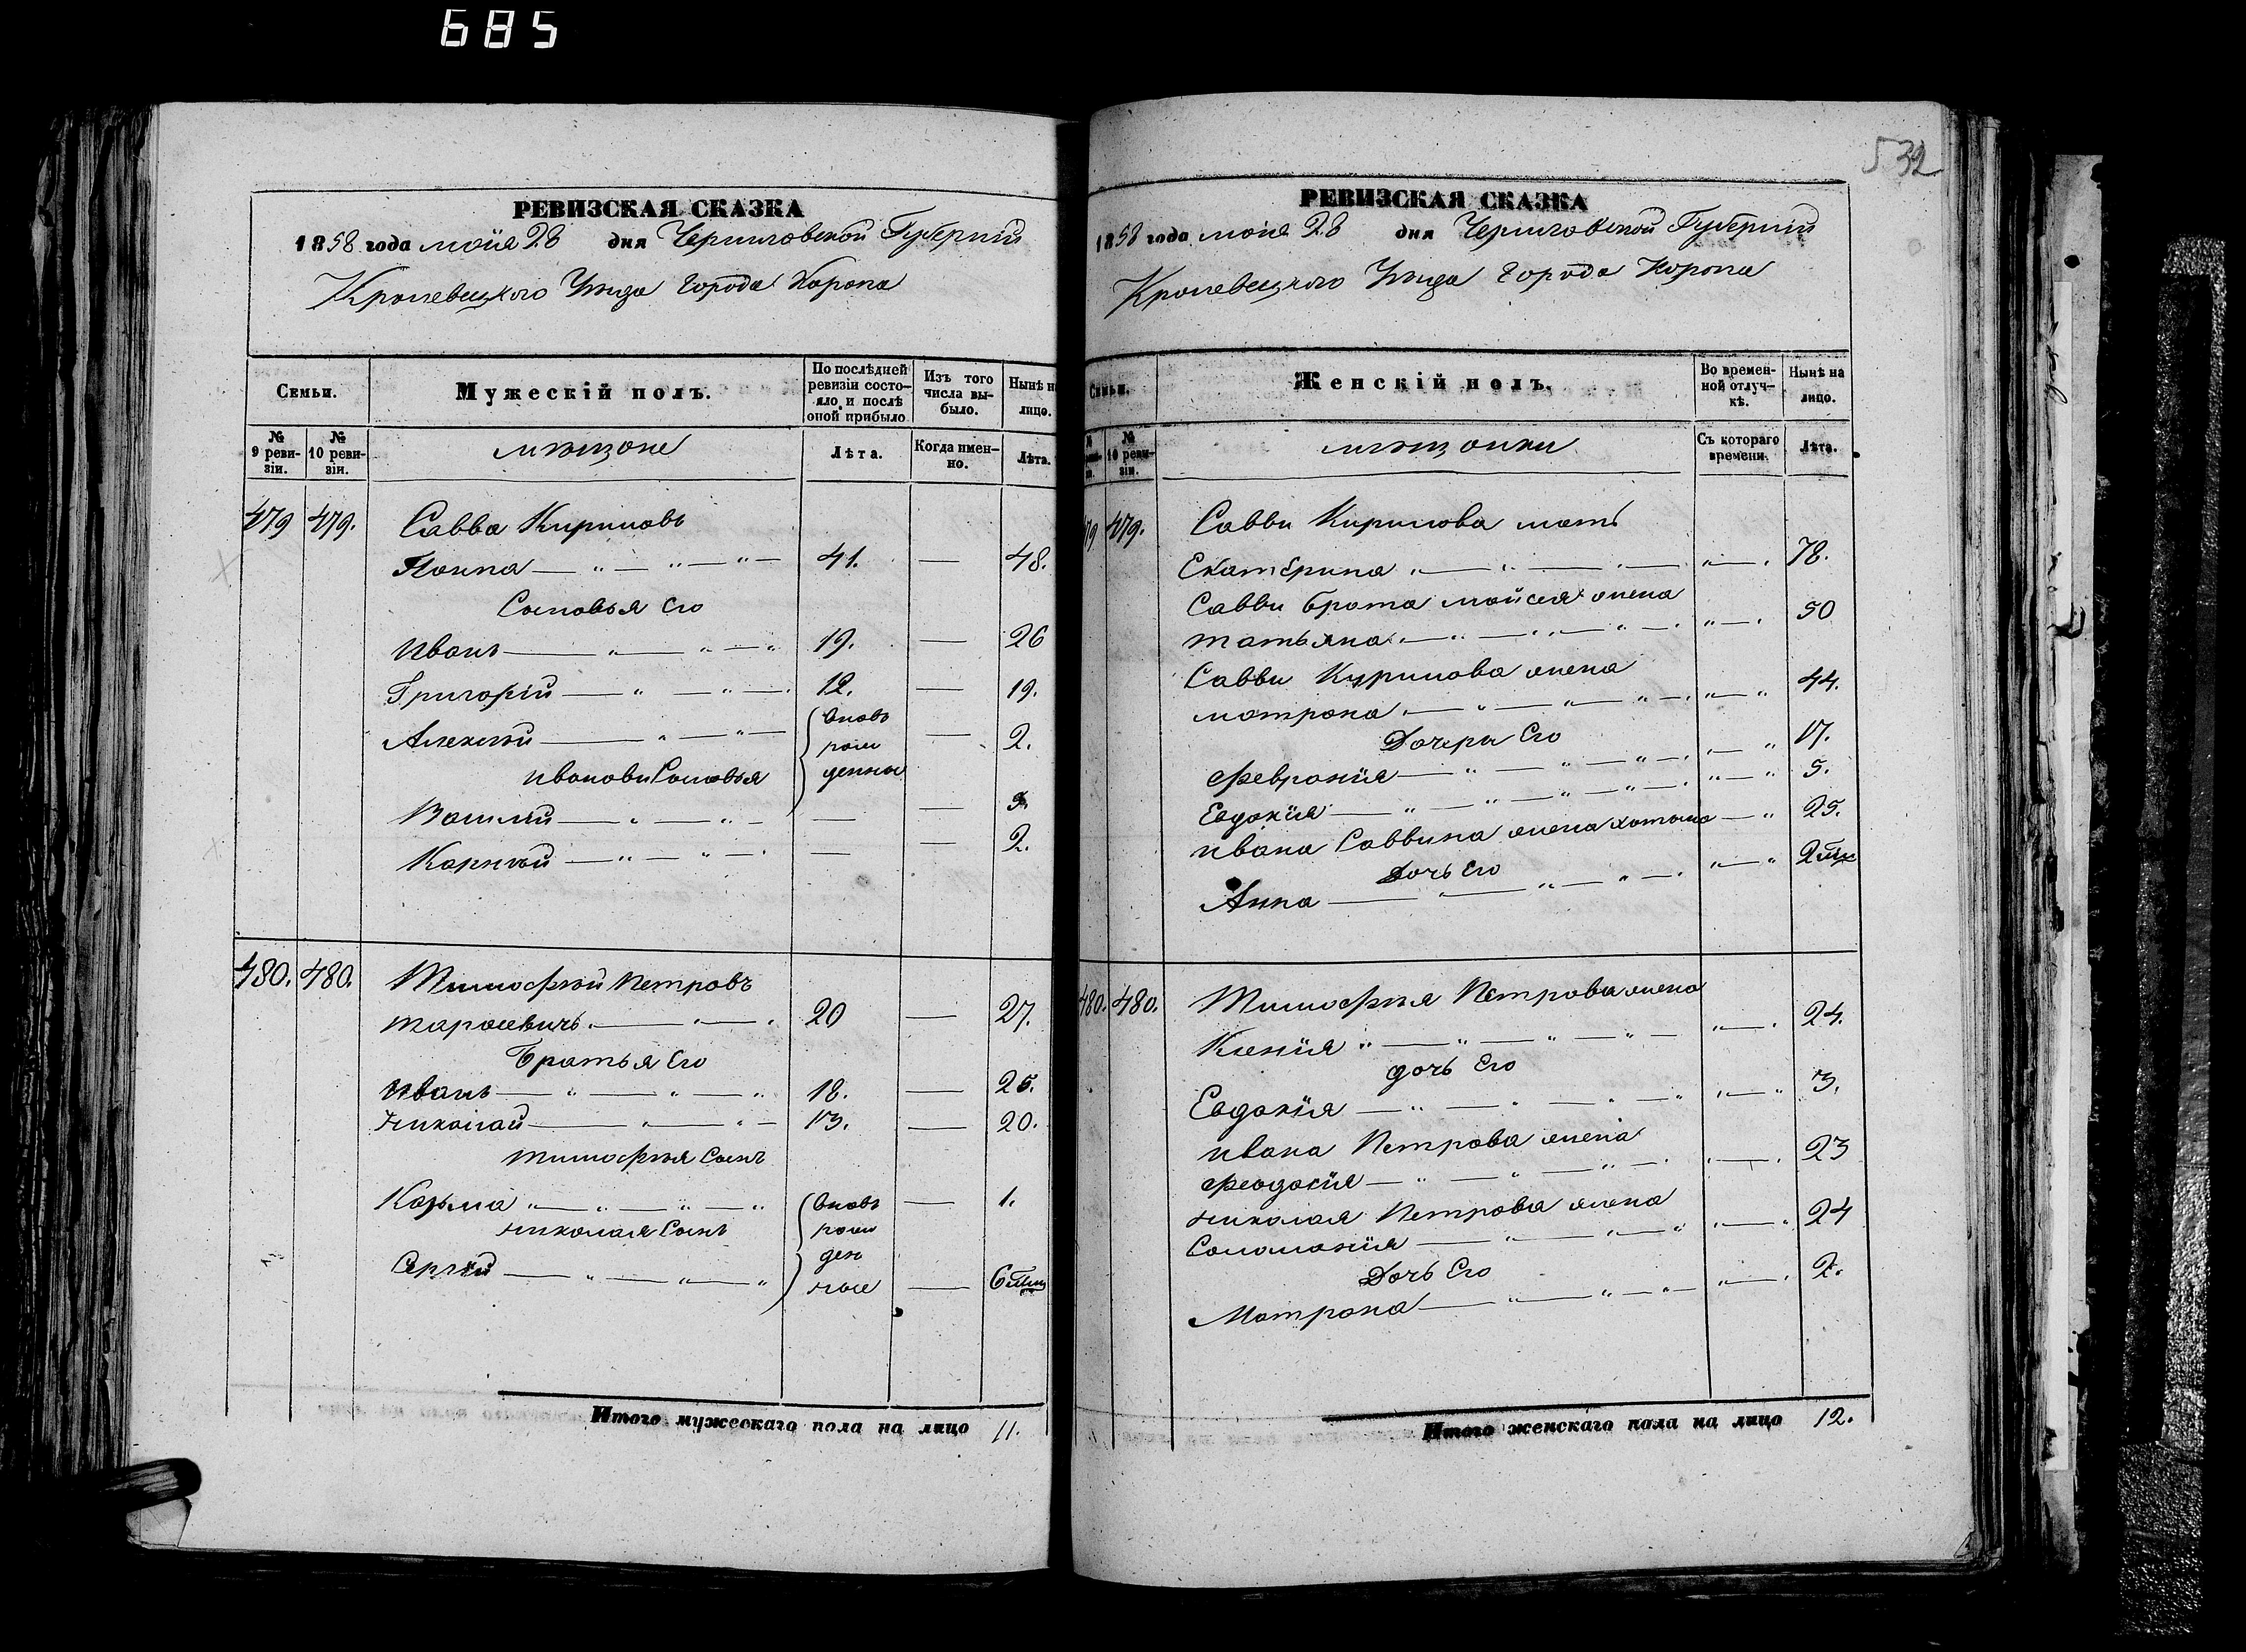 685
532
РЕВИЗСКАЯ СКАЗКА
1858 года маія 28 дня Черниговской Губерніи
Кролевецкого Уѣзда города Коропа
Семьи.
Мужескій полъ.
По послѣдней ревизіи состояло и послѣ оной прибыло
Изъ того числа выбыло.
Нынѣ на лицо.
№ 9 ревизіи.
№ 10 ревизіи.
мѣщане
Лѣта.
Когда именно.
Лѣта.
479 479. Савва Кириловъ
41. — 48.
Сыновья его
Иванъ 19. — 26
Григорій 12. — 19.
Алексѣй — 2.
вновь рожденные
Ивановы Сыновья
Василій — — 3.
Корнѣй — — 2.
480. 480. Тимофѣй Петровъ
Тарасевичъ 20 — 27.
Братья его
Иванъ 18. — 25.
Николай 13. — 20.
Тимофѣя Сынъ
Козьма — 1.
вновь рожденные
Николая Сынъ
Сергѣй — 6 мѣ
Итого мужескаго пола на лицо 11.
РЕВИЗСКАЯ СКАЗКА
1858 года маія 28 дня Черниговской Губерніи
Кролевецкого Уѣзда города Коропа
Семьи.
Женскій полъ.
Во временной отлучкѣ.
Нынѣ на лицо.
№ 10 ревизіи.
мѣщанки
Съ котораго времени.
Лѣта.
79 479. Саввы Кирилова мать
Екатерина 78.
Саввы брата Мойсея жена
Татьяна 50
Саввы Кирилова жена
Матрона 44.
Дочери его
Февронія 17.
Евдокія 5.
Ивана Саввина жена 25.
Дочь его
Анна 2 мѣ
480. 480. Тимофѣя Петрова жена
Ксенія 24.
дочь его
Евдокія 3.
Ивана Петрова жена
Феодосія 23
Николая Петрова жена
Соломонія 24
Дочь его
Матрона 2.
Итого женскаго пола на лицо 12.